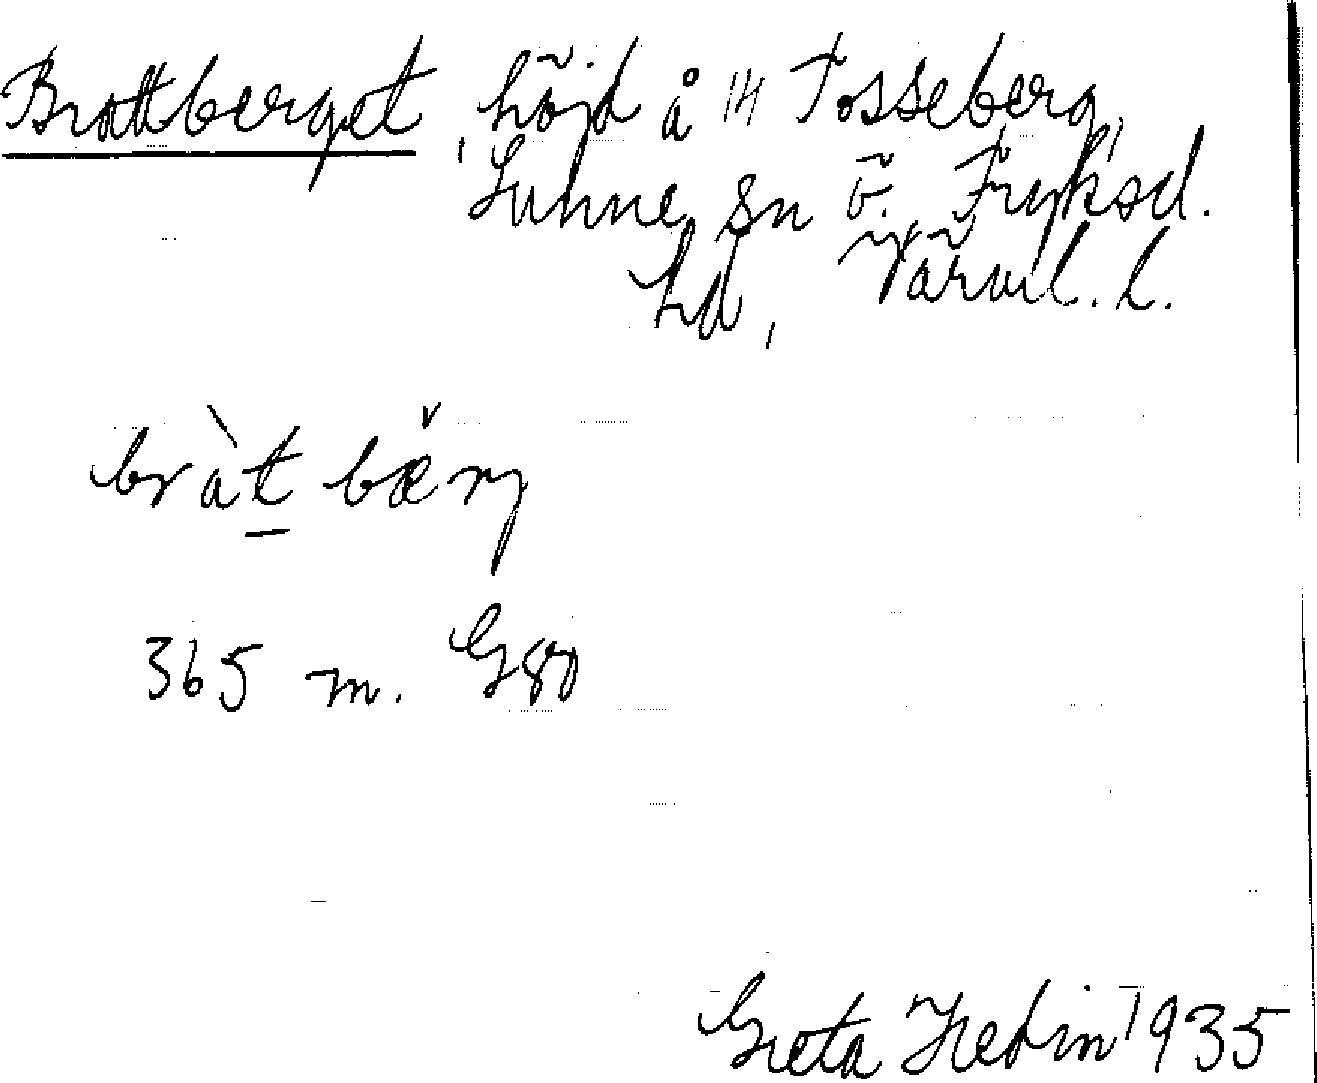 Brattberget, höjd å 114 Tosseberg,
Sunne sn Ö. Fryksd.
hd, Värml. l.
bràt bæ̌rj
365 m. G80
Greta Hedin 1935